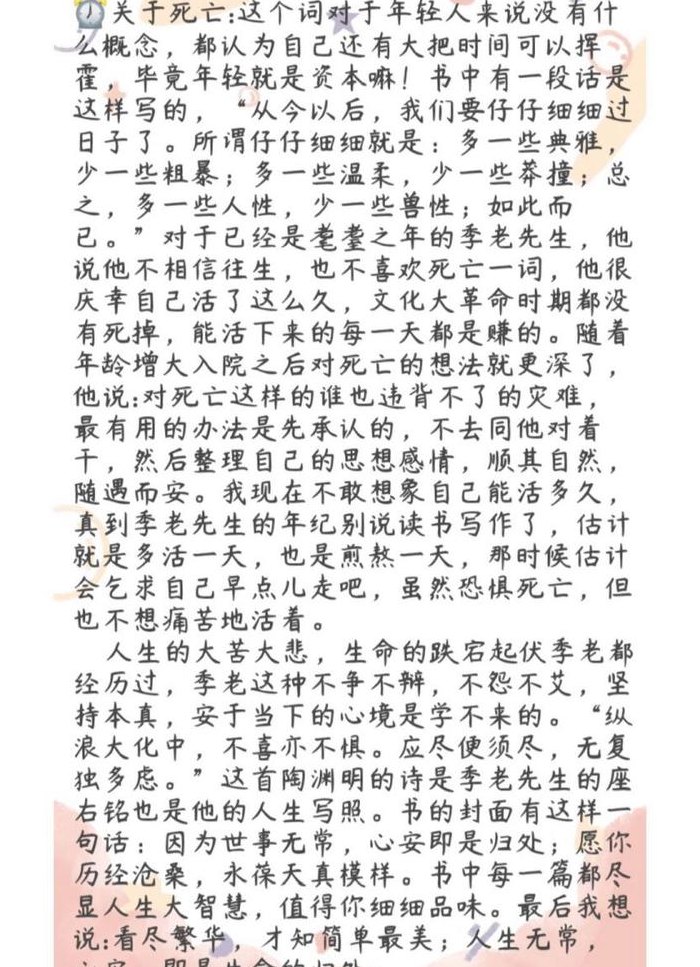 关于死亡:这个词对于年轻人来说没有什
么概念，都认为自己还有大把时间可以挥
霍，毕竟年轻就是资本嘛！书中有一段话是
这样写的，“从今以后，我们要仔仔细细过
日子了。所谓仔仔细细就是：多一些典雅，
少一些粗暴；多一些温柔，少一些莽撞；总
之，多一些人性，少一些兽性；如此而
已。”对于已经是耄耋之年的季老先生，他
说他不相信往生，也不喜欢死亡一词，他很
庆幸自己活了这么久，文化大革命时期都没
有死掉，能活下来的每一天都是赚的。随着
年龄增大入院之后对死亡的想法就更深了，
他说:对死亡这样的谁也违背不了的灾难，
最有用的办法是先承认的，不去同他对着
干，然后整理自己的思想感情，顺其自然，
随遇而安。我现在不敢想象自己能活多久，
真到季老先生的年纪别说读书写作了，估计
就是多活一天，也是煎熬一天，那时候估计
会乞求自己早点儿走吧，虽然恐惧死亡，但
也不想痛苦地活着。
人生的大苦大悲，生命的跌宕起伏季老都
经历过，季老这种不争不辩，不怨不艾，坚
持本真，安于当下的心境是学不来的。“纵
浪大化中，不喜亦不惧。应尽便须尽，无复
独多虑。”这首陶渊明的诗是季老先生的座
右铭也是他的人生写照。书的封面有这样一
句话：因为世事无常，心安即是归处；愿你
历经沧桑，永葆天真模样。书中每一篇都尽
显人生大智慧，值得你细细品味。最后我想
说:看尽繁华，才知简单最美；人生无常，
心安，即是生命的归处